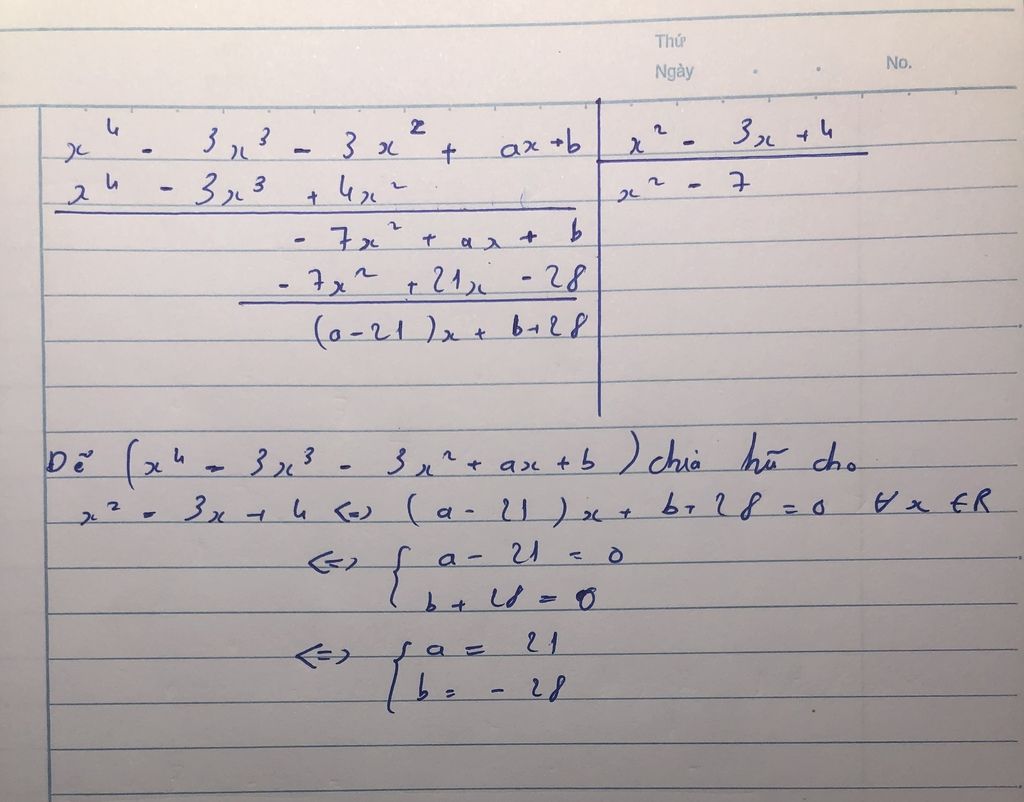 Thứ
Ngày . . No.
x⁴ - 3x³ - 3x² + ax+b | x² - 3x + 4
x⁴ - 3x³ + 4x² | x² - 7
- 7x² + ax + b
- 7x² + 21x - 28
(a-21)x + b+28
Để (x⁴ - 3x³ - 3x² + ax + b) chia hữ cho
x² - 3x + 4 <=> (a - 21)x + b+28 = 0 ∀x ∈R
<=> { a - 21 = 0
b + 28 = 0
<=> { a = 21
b = - 28